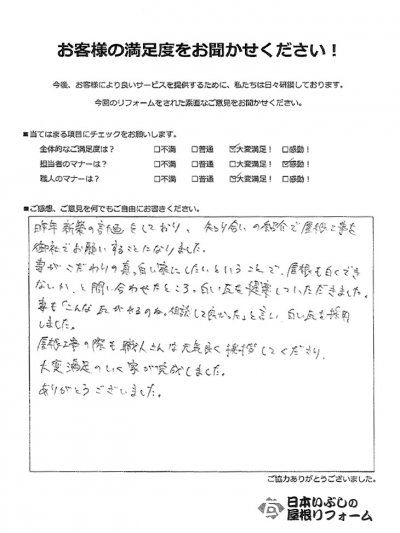 お客様の満足度をお聞かせください！
今後、お客様により良いサービスを提供するために、私たちは日々研鑚しております。
今回のリフォームをされた素直なご意見をお聞かせください。
■当てはまる項目にチェックをお願いします。
全体的なご満足度は？ □不満 □普通 ☑大変満足！ □感動！
担当者のマナーは？ □不満 □普通 □大変満足！ ☑感動！
職人のマナーは？ □不満 □普通 ☑大変満足！ □感動！
■ご感想、ご意見を何でもご自由にお書きください。
昨年新築の計画をしており、知り合いの紹介で屋根工事を
御社でお願いすることになりました。
妻がこだわりの真っ白い家にしたいということで、屋根も白くでき
ないか、と問い合わせたところ、白い瓦を提案していただきました。
妻も「こんな瓦があるのか。相談して良かった」と言い白い瓦を採用
しました。
屋根工事の際も職人さんは元気良く挨拶してくださり、
大変満足のいく家が完成しました。
ありがとうございました。
ご協力ありがとうございました。
日本いぶしの
屋根リフォーム